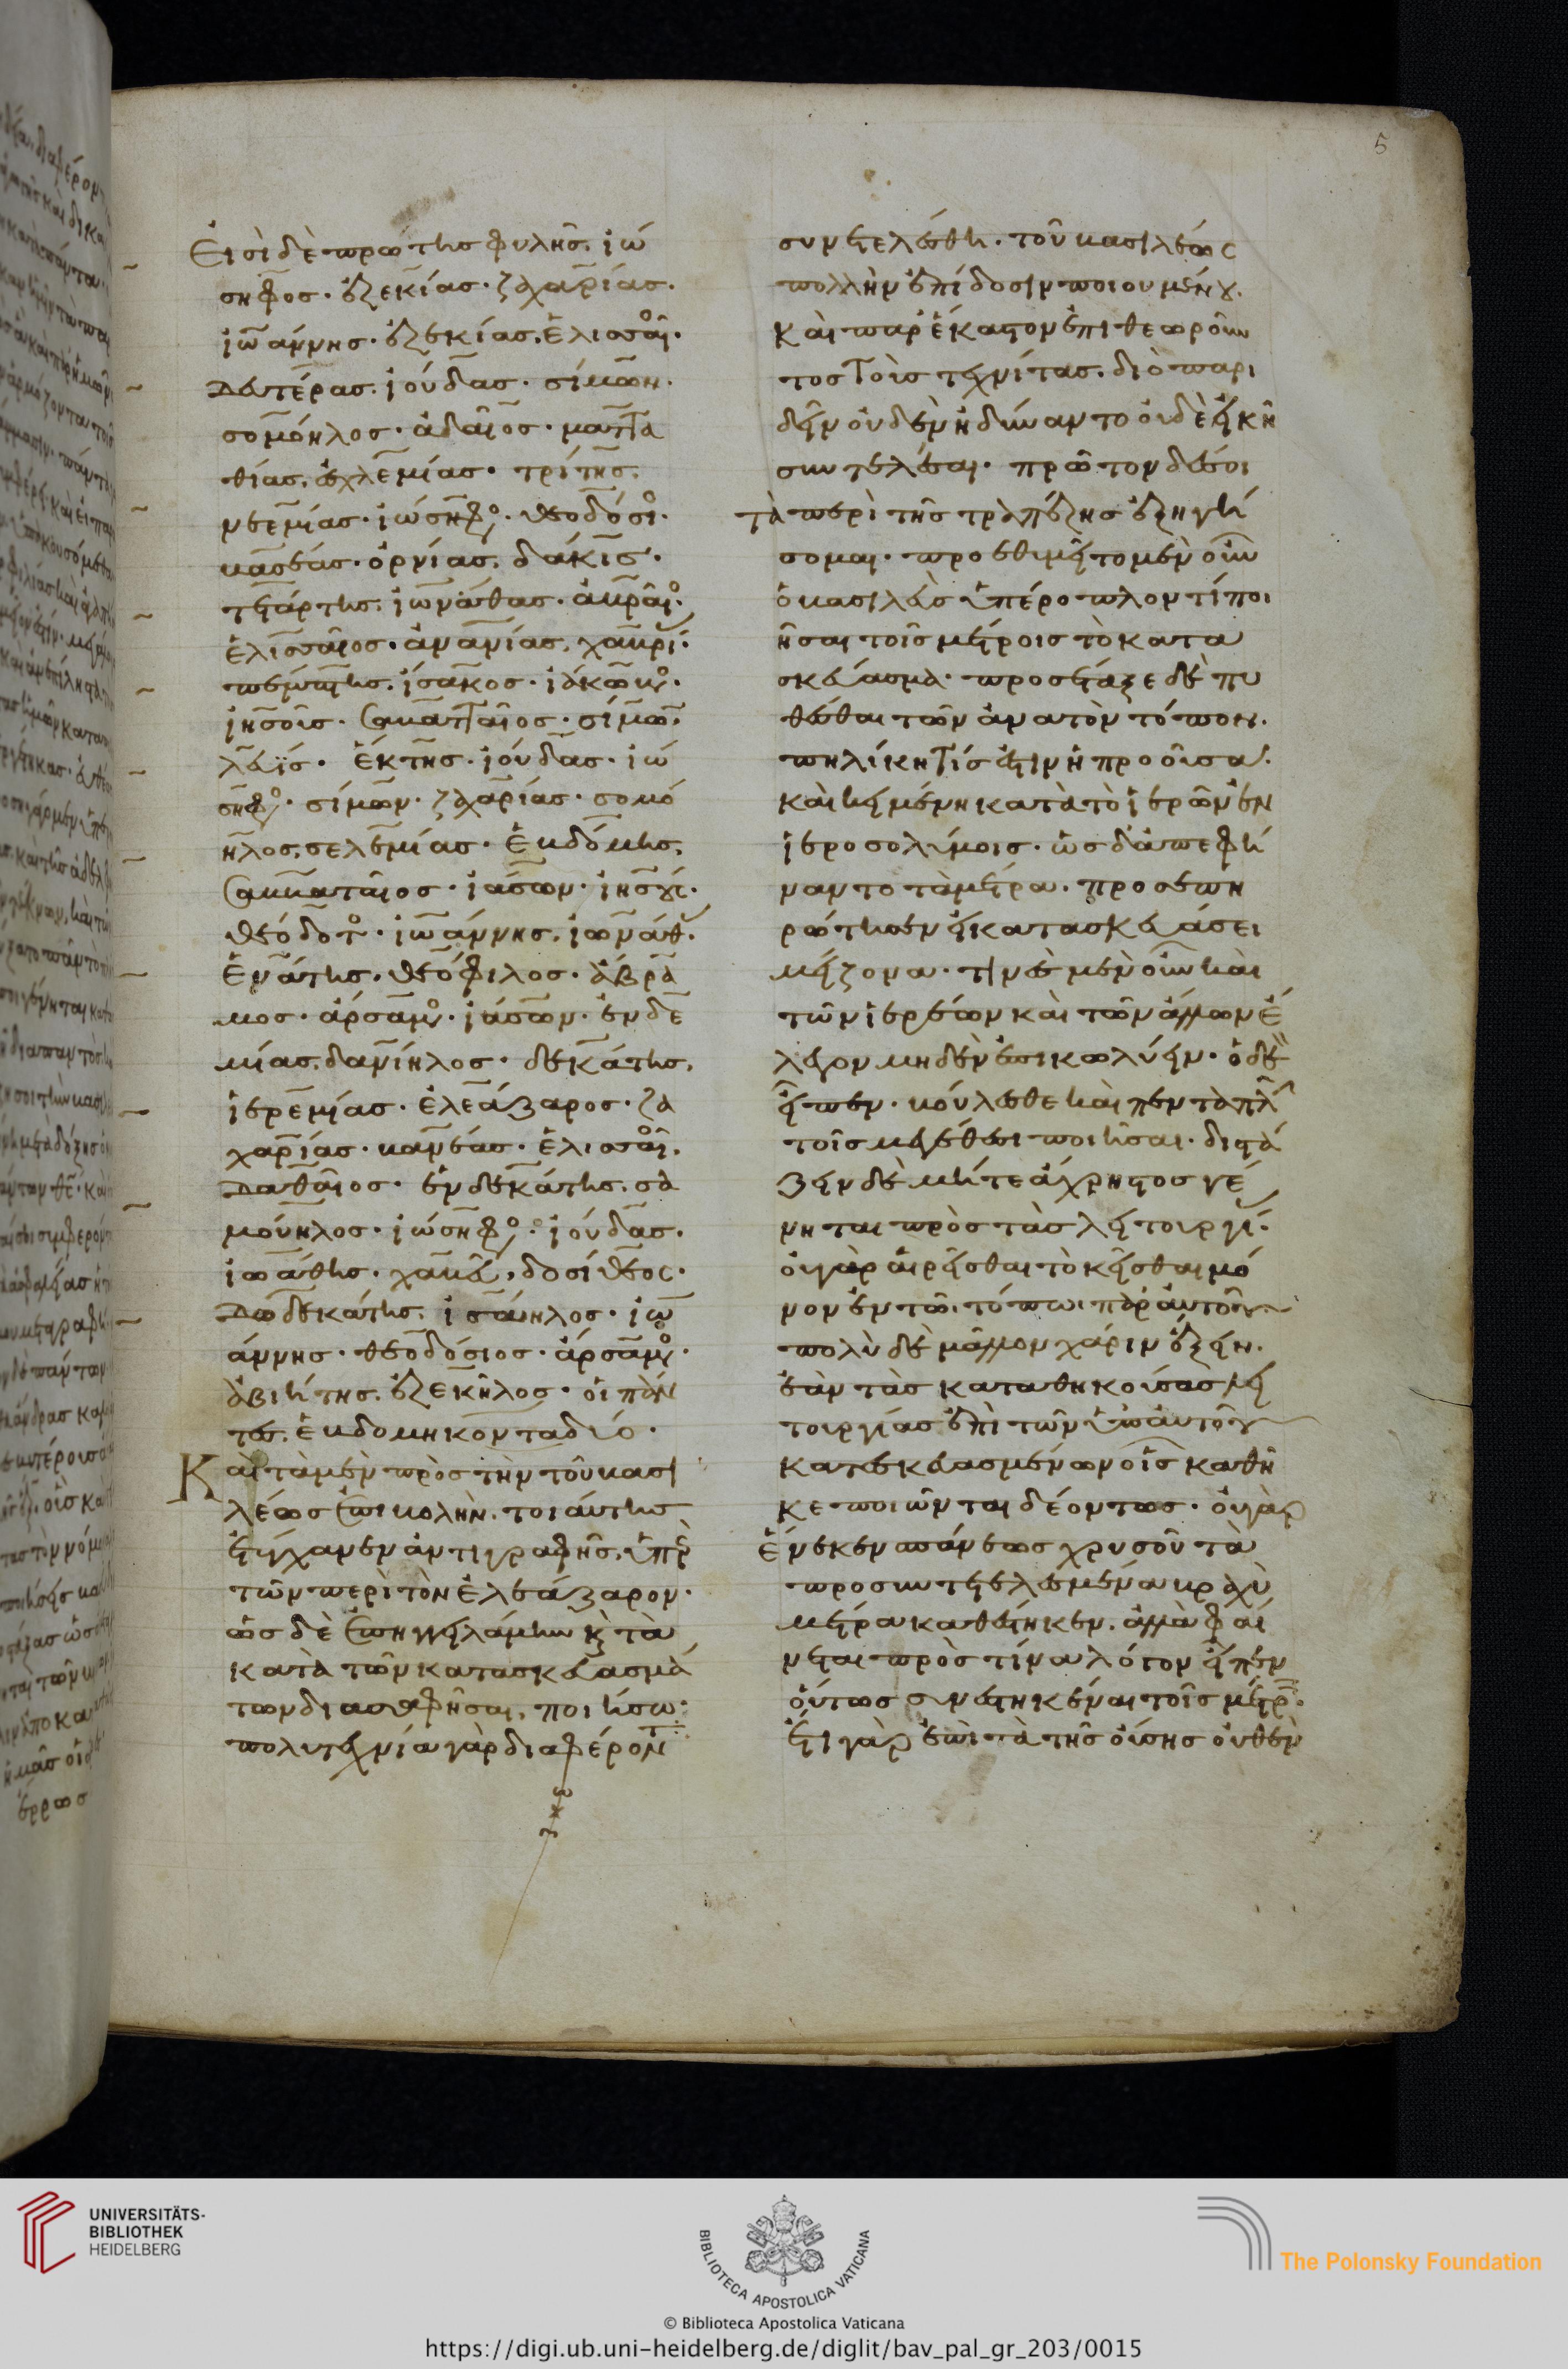 Εἰσὶ δὲ πρώτης φυλῆς. ἰώ
σηφος· ἐζεκίας· ζαχαρίας·
ἰωάννης· ἐζεκίας. ἐλισσαῖο·
δευτέρας. ἰούδας· σίμων·
σομόηλος· ἀδαῖος· ματτα
θίας. ἐσχλεμίας· τρίτης.
νεεμίας· ἰώσηφο· θεοδόσιο·
βασέας· ὀρνίας. δάκις·
τετάρτης. ἰωνάθας· ἀβραῖο·
ἐλισσαῖος· ἀνανίας. χαβρί·
πέμπτης. ἴσακος· ἰάκωβο·
ἰησοῦς· σαββατταῖος· σίμω·
λευϊς· ἕκτης· ἰούδας· ἰώ
σηφο· σίμων· ζαχαρίας· σομό
ηλος. σελεμίας· ἑβδόμης.
σαββαταῖος· ἰάσων· ἰησοῦ·
θεόδοτο· ἰωάννης. ἰωνάθ·
ἐνάτης· θεόφιλος· ἄβρα
μος· ἄρσαμο· ἰάσων· ἐνδε
μίας. δανίηλος· δεκάτης.
ἱερεμίας· ἐλεάζαρος· ζα
χαρίας· βανέας· ἐλισσαῖο.
δαθαῖος· ἑνδεκάτης. σα
μούηλος· ἰώσηφο· ἰούδας·
ἰωάθης· χαβεῦ. δοσίθεος·
δωδεκάτης. ἰσάηλος· ἰω
άννης· θεοδόσιος· ἄρσαμο·
ἀβιήτης. ἐζεκῆλος· οἱ πάν
τες. ἑβδομήκοντα δύο·
Καὶ τὰ μὲν πρὸς τὴν τοῦ βασι
λέως ἐπιστολὴν. τοιαύτης
ἐτύγχανεν ἀντιγραφῆς. ὑπὸ
τῶν περὶ τὸν ἐλεάζαρον.
ὡς δὲ ἐπηγγειλάμην κ τὰ
κατὰ τῶν κατασκευασμά
των διασαφῆσαι. ποιήσω·
πολυτεχνία γὰρ διαφέροντ
συνετελέσθη. τοῦ βασιλέως
πολλὴν ἐπίδοσιν ποιουμένου.
καὶ παρ ἕκαστον ἐπιθεωροῦν
τος τοὺς τεχνίτας. διὸ παρι
δεῖν οὐδὲν ἠδύναντο οὐδὲ εἰκῆ
συντελέσαι· πρῶτον δέ σοι
τὰ περὶ τῆς τραπέζης ἐξηγή
σομαι. προεθυμεῖτο μὲν οὖν
ὁ βασιλεὺς ὑπέροπλον τί ποι
ῆσαι τοῖς μέτροις τὸ κατα
σκεύασμα. προσέταξε δὲ πυ
θέσθαι τῶν ἀνα τὸν τόπον.
πηλίκη τίς ἐστιν ἡ προοῦσα.
καὶ κειμένη κατὰ τὸ ἱερὸν ἐν
ἱεροσολύμοις. ὡς δ ἀπεφή
ναντο τὰ μέτρα. προσεπη
ρώτησεν εἰ κατασκευάσει
μείζονα. τινὲς μὲν οὖν καὶ
τῶν ἱερέων καὶ τῶν ἄλλων ἔ
λεγον μηδὲν ἐπικωλύειν. ὁ δὲ
εἶπεν. βούλεσθε καὶ πενταπλῆ
τοῖς μεγέθεσι ποιῆσαι. διστά
ζειν δὲ μήτε ἄχρηστος γέ
νηται πρὸς τὰς λειτουργί·
οὐ γὰρ αἱρεῖσθαι τὸ κεῖσθαι μό
νον ἐν τῶι τόπωι παρ αὐτοῦ
πολὺ δὲ μᾶλλον χάριν ἕξειν.
ἐὰν τὰς καταθηκούσας λει
τουργίας ἐπὶ τῶν ὑπ αὐτοῦ
κατεσκευασμένων οἷς καθῆ
κε ποιῶνται δεόντως. οὐ γὰρ
ἕνεκεν σπάνεως χρυσοῦ τὰ
προσυντετελεσμένα βραχὺ
μέτρα καθέστηκεν. ἀλλὰ φαί
νεται πρός τινα λόγον εἶπεν
οὕτως συνεστηκέναι τοῖς μέτρ.
ἔτι γὰρ ἐπιτὰ τῆς οὔσης οὐθὲν
5
UNIVERSITÄTS-
BIBLIOTHEK
HEIDELBERG
BIBLIOTECA APOSTOLICA VATICANA
The Polonsky Foundation
© Biblioteca Apostolica Vaticana
https://digi.ub.uni-heidelberg.de/diglit/bav_pal_gr_203/0015